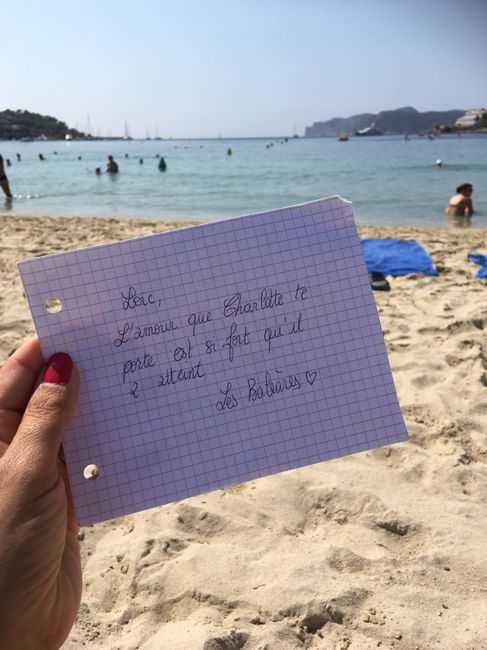 Loïc,
L'amour que Charlotte te
porte est si fort qu'il
a atteint
Les Baléares ♡